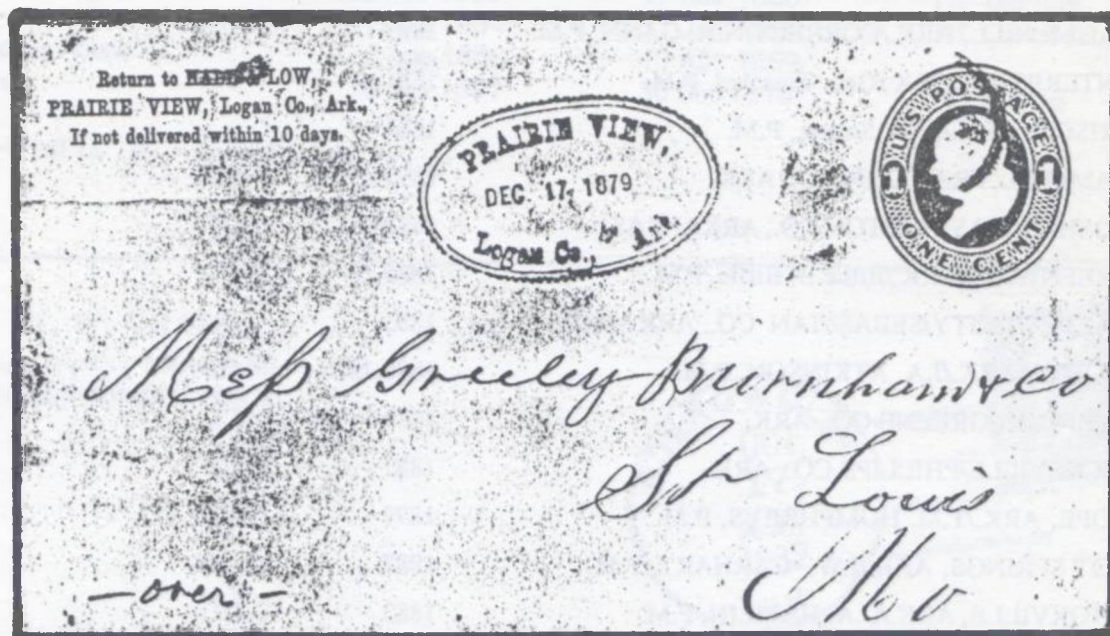 Return to LOW,
PRAIRIE VIEW, Logan Co., Ark.,
If not delivered within 10 days.
PRAIRIE VIEW,
DEC 17, 1879
Logan Co., Ark
U.S. POSTAGE
1 1
ONE CENT
Mess Greeley Burnham & Co
St Louis
Mo
- over -